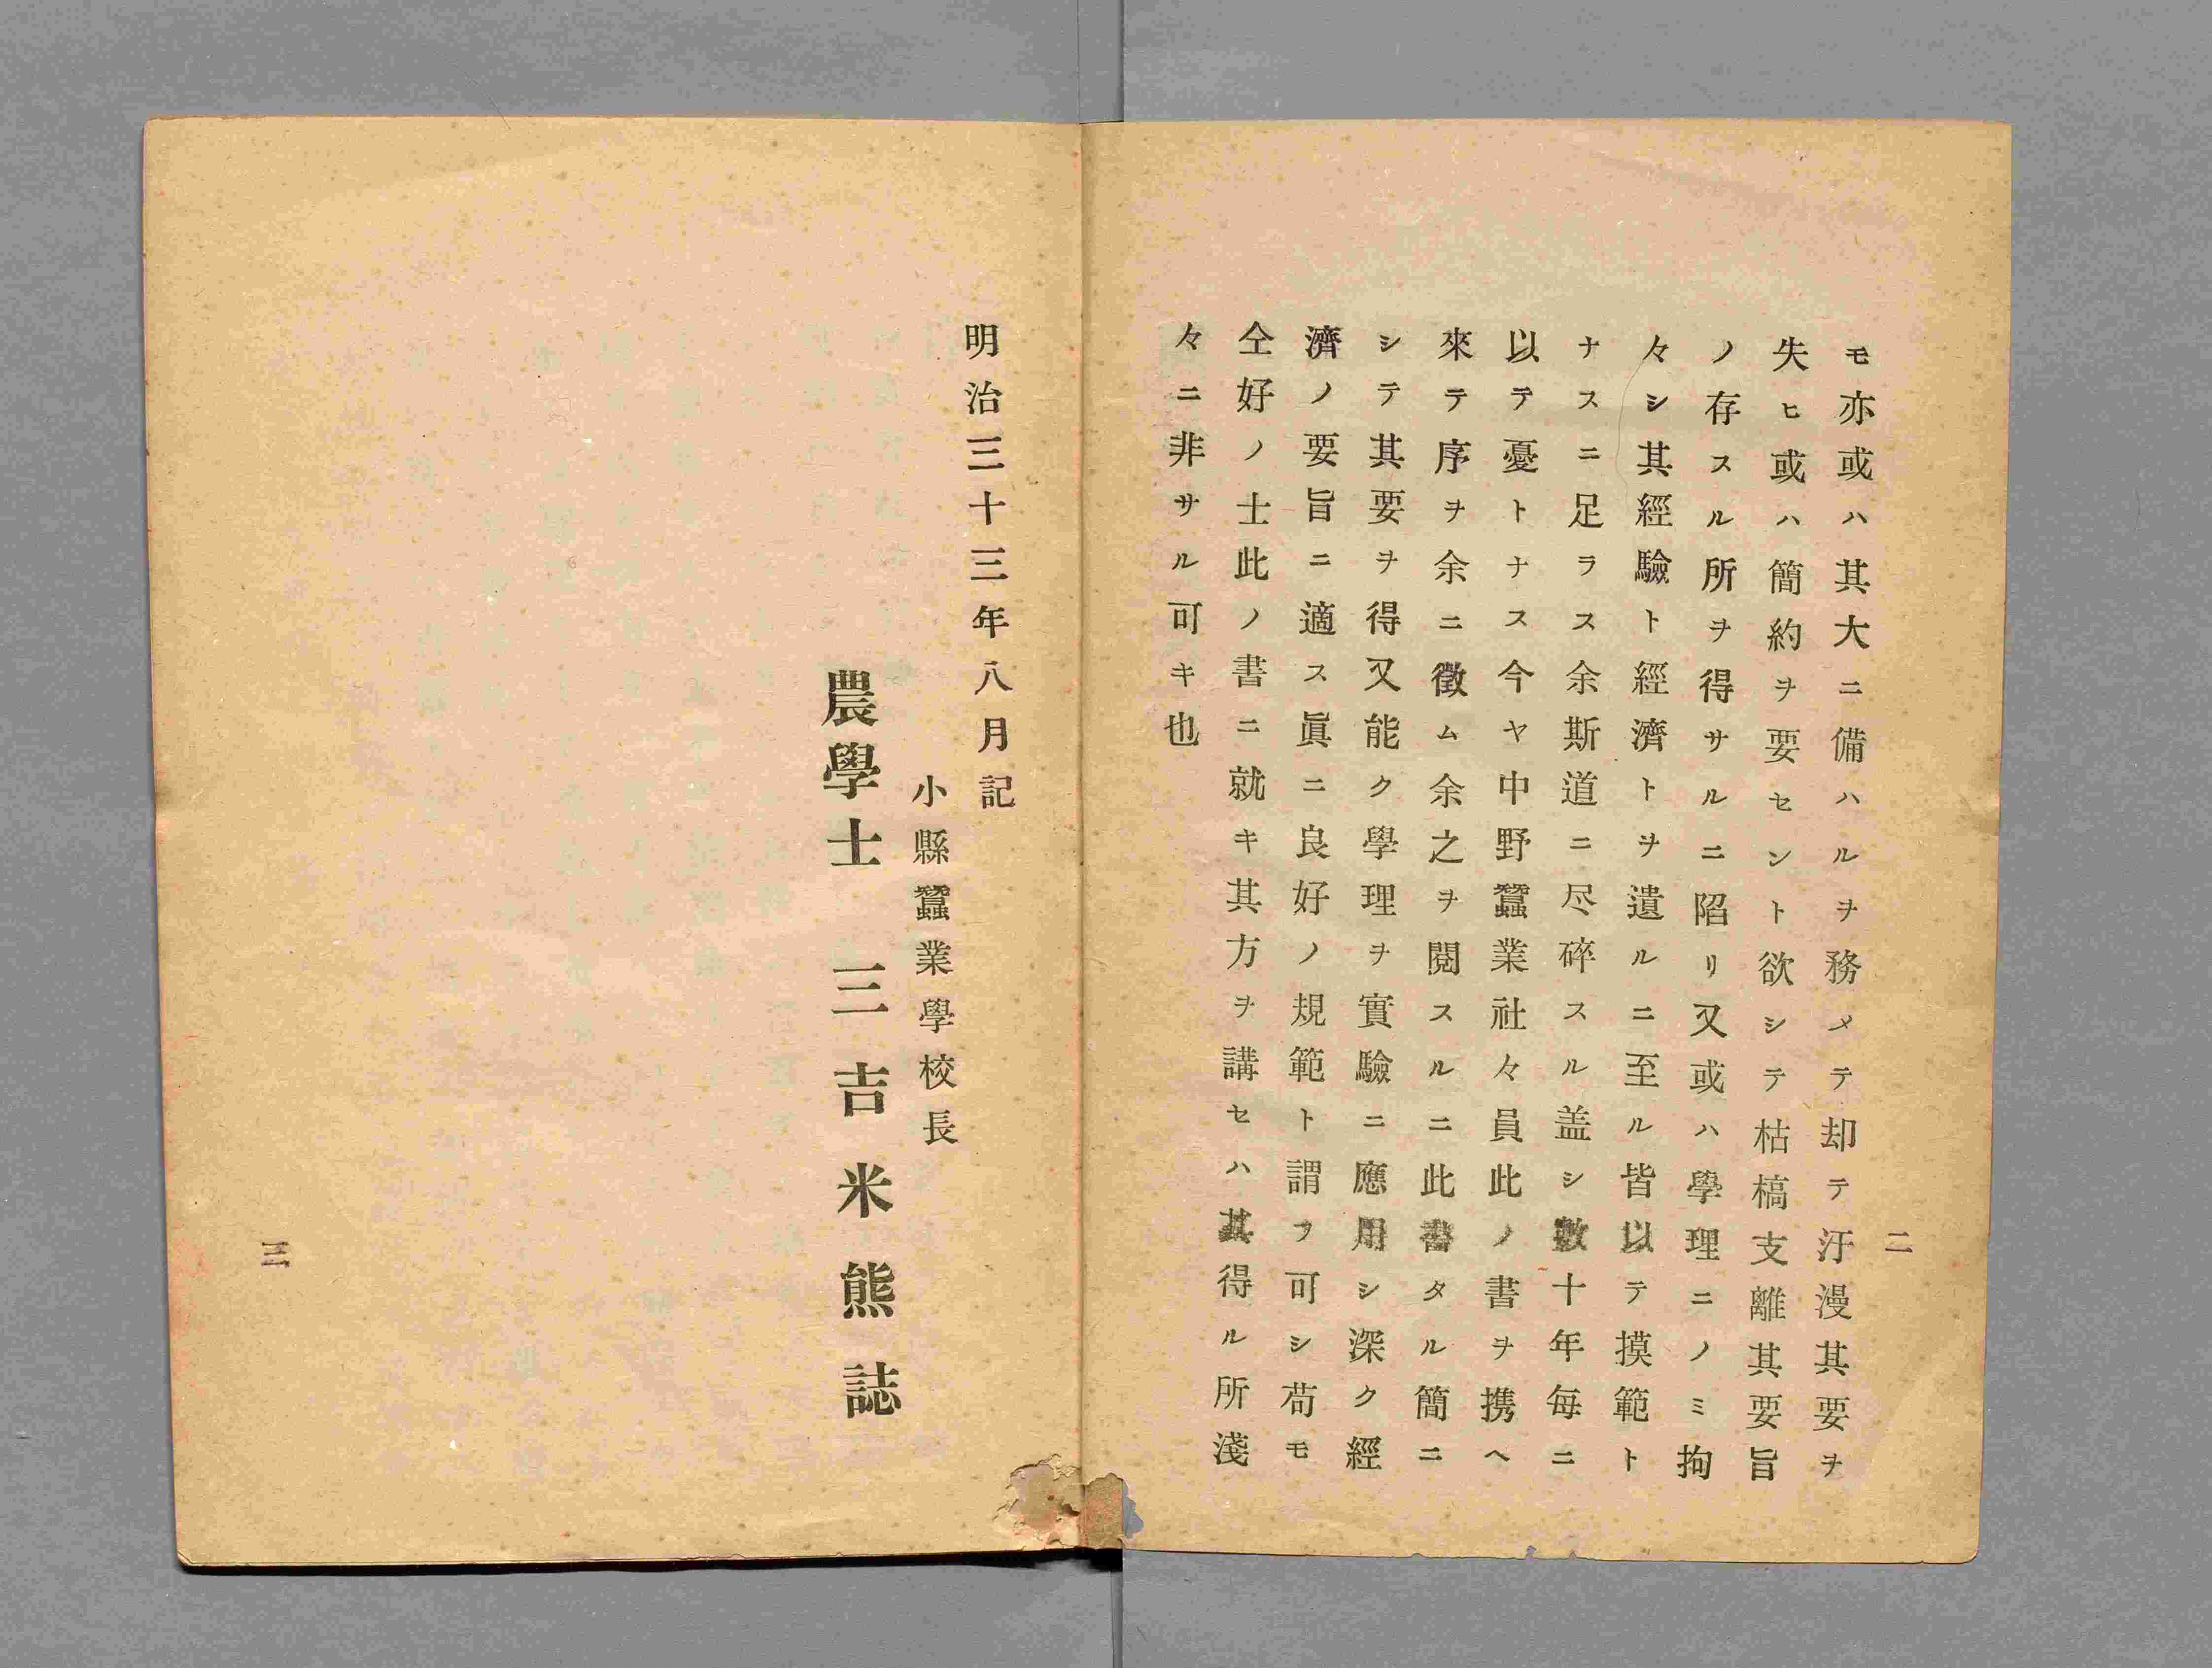 二
モ亦或ハ其大ニ備ハルヲ務メテ却テ汙漫其要ヲ
失ヒ或ハ簡約ヲ要セント欲シテ枯槁支離其要旨
ノ存スル所ヲ得サルニ陷リ又或ハ學理ニノミ拘
々シ其經驗ト經濟トヲ遺ルニ至ル皆以テ摸範ト
ナスニ足ラス余斯道ニ尽碎スル盖シ數十年毎ニ
以テ憂トナス今ヤ中野蠶業社々員此ノ書ヲ携ヘ
來テ序ヲ余ニ徵ム余之ヲ閱スルニ此書タル簡ニ
シテ其要ヲ得又能ク學理ヲ實驗ニ應用シ深ク經
濟ノ要旨ニ適ス眞ニ良好ノ規範ト謂フ可シ苟モ
仝好ノ士此ノ書ニ就キ其方ヲ講セハ其得ル所淺
々ニ非サル可キ也
明治三十三年八月記
小縣蠶業學校長
農學士 三吉米熊誌
三